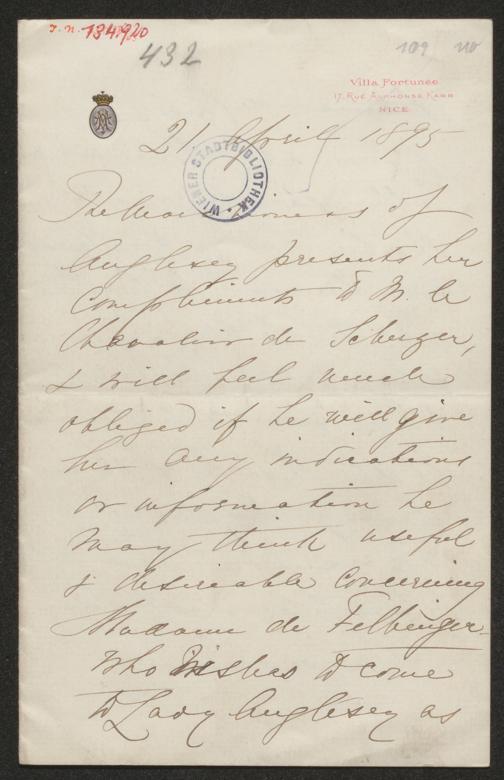 I. N. 134.920
432
109 110
Villa Fortunee
17, Rue Alphonse Karr
NICE
21 April 1895
WIENER STADTBIBLIOTHEK
The Marchioness of
Anglesey presents her
Compliments to M. le
Chevalier de Scherzer,
& will feel much
obliged if he will give
her any indications
or information he
may think useful
& desireable concerning
Madame de Felbinger
who wishes to come
to Lady Anglesey as